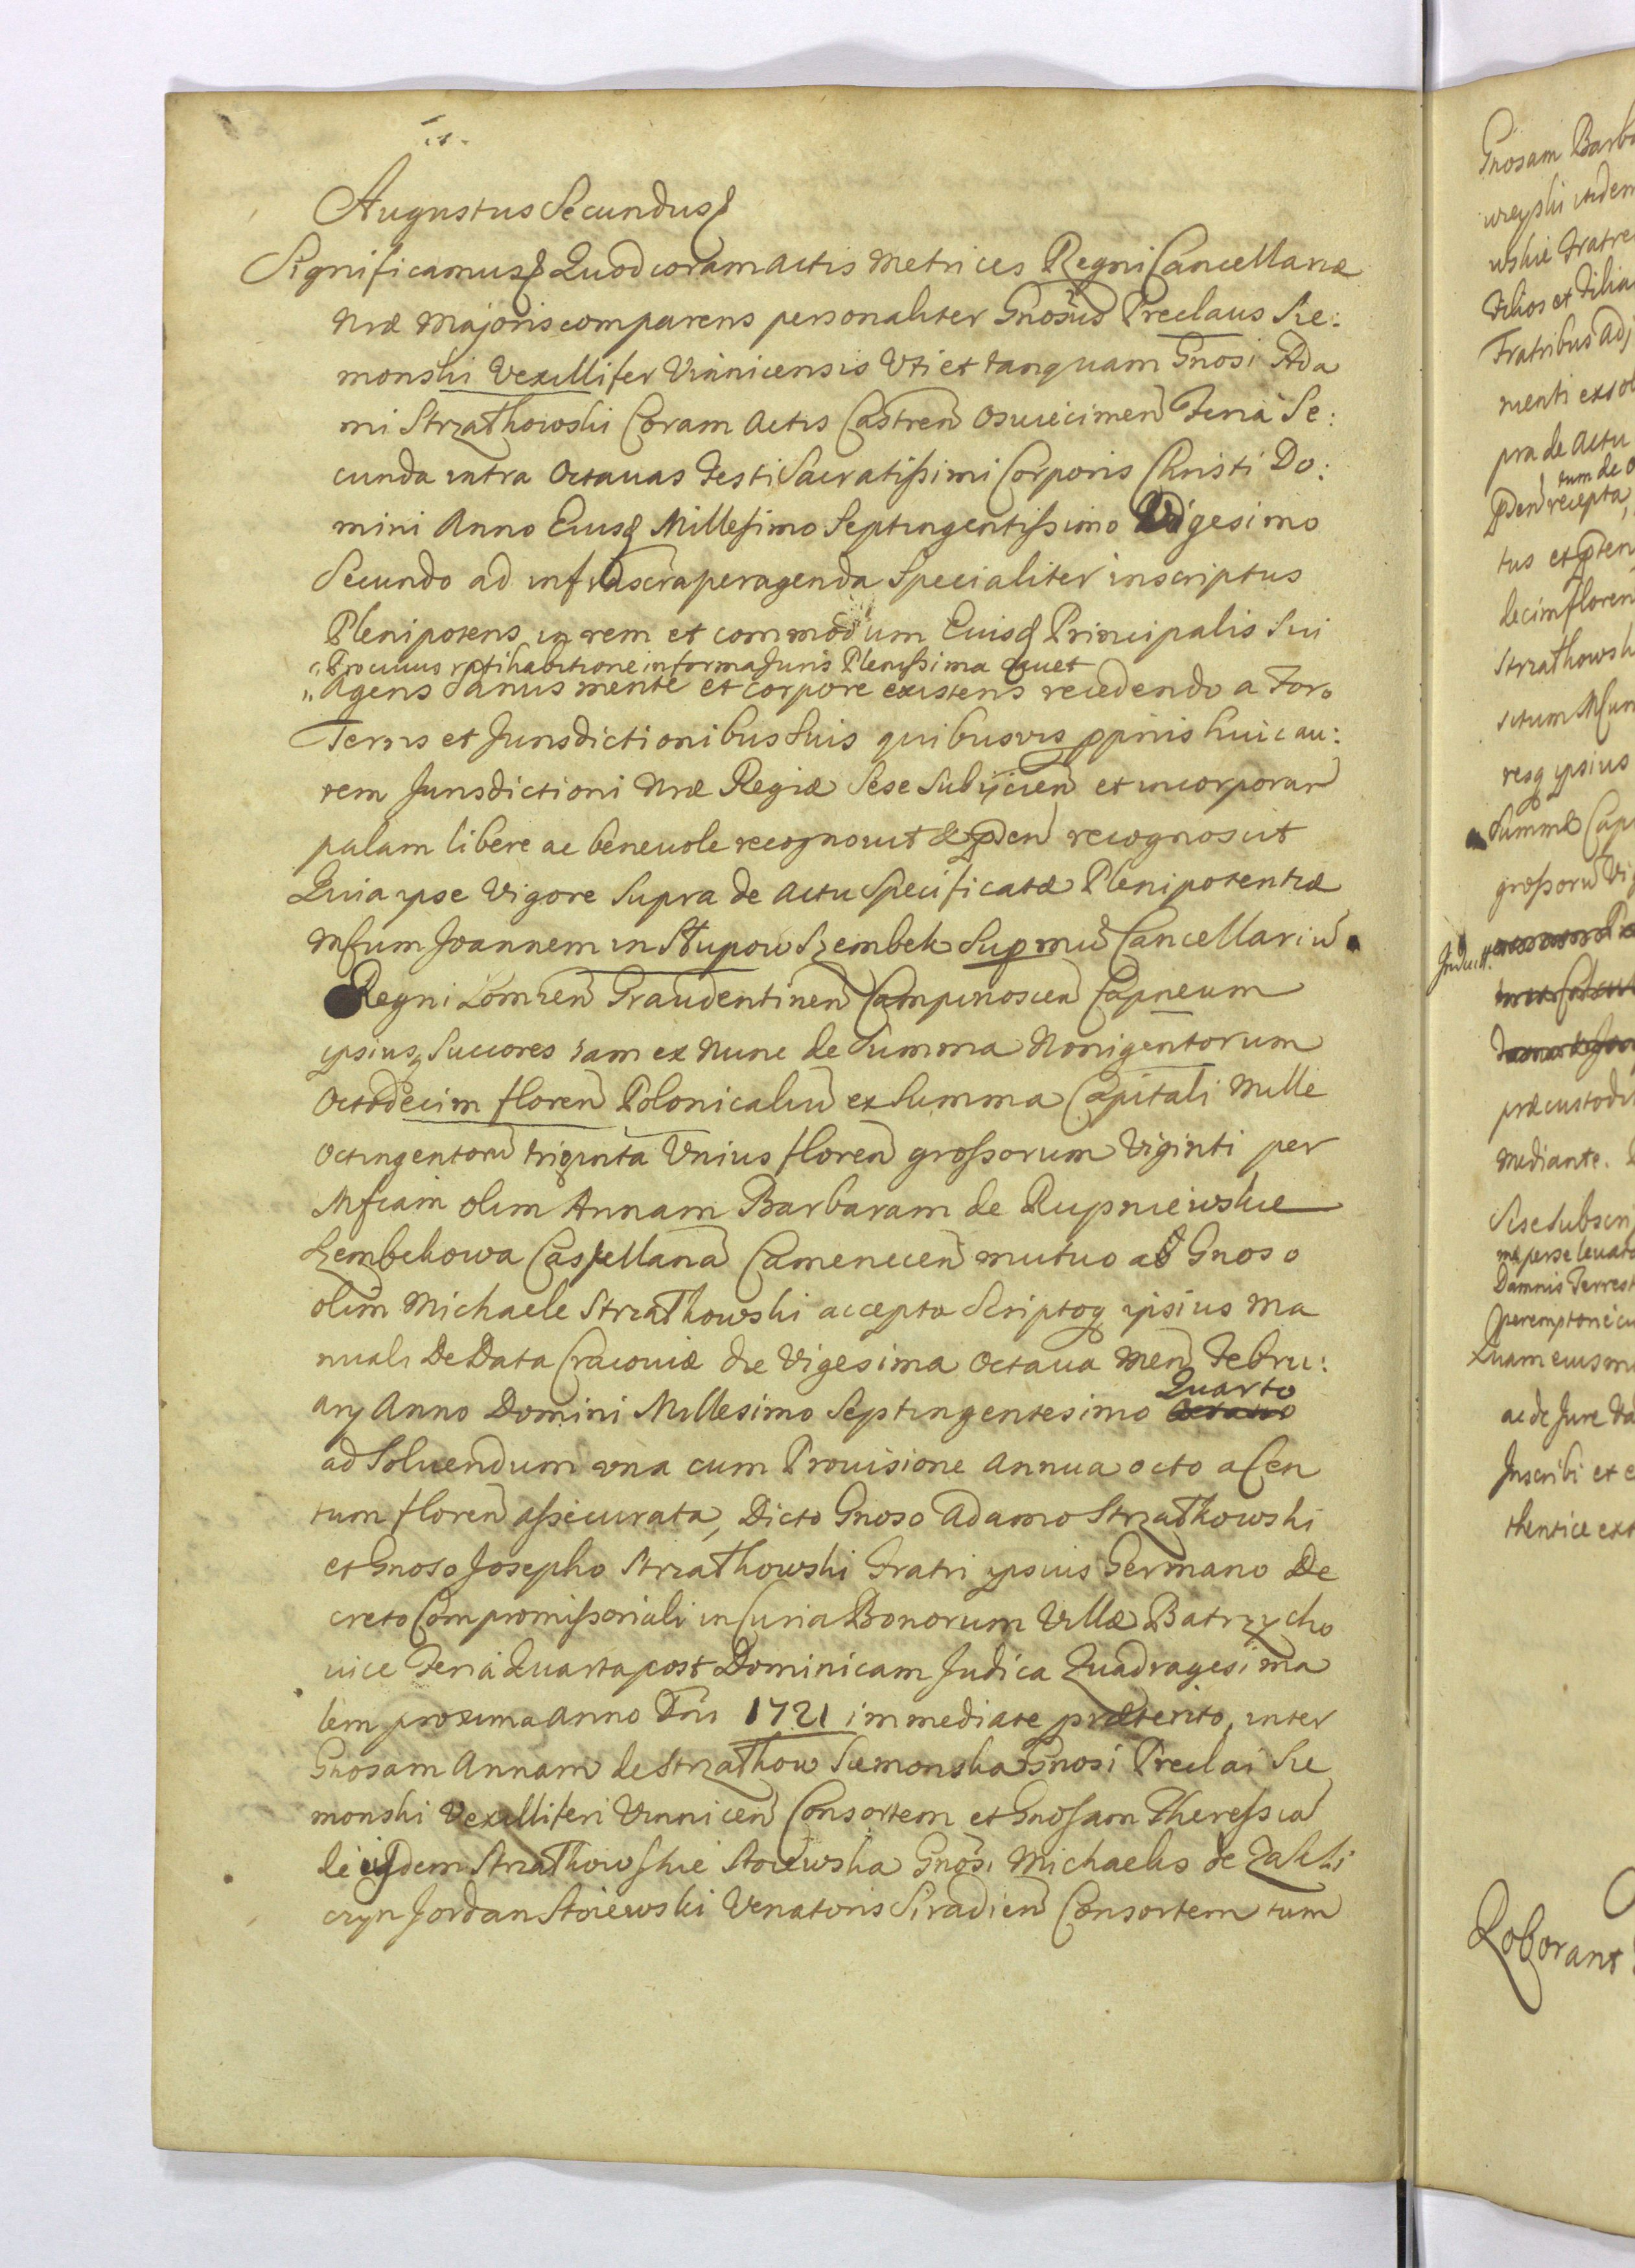 Augustus Secundus
Significamus Quod coram Actis Metrices Regni Cancellariæ
Nræ Majoris comparens personaliter Gnosus Preclaus Sie:
monski Vexillifer Vinnicensis Uti et tanquam Gnosi Ada
mi Strzałkowski Coram Actis Castren Osviecimen Feria Se:
cunda intra Octavas Festi Sacratissimi Corporis Christi Do:
mini Anno Eiusq Millesimo Septingentissimo Vigesimo
Secundo ad infrascra peragenda Specialiter inscriptus
Plenipotens in rem et commodum Eiusq Principalis Sui
Pro cuius ratihabitione in forma Juris Plenissima cavet
Agens Sanus mente et corpore existens recedendo a Foro
Terris et Jurisdictionibus Suis quibusvis ppriis huic au:
tem Jurisdictioni Nræ Regiæ Sese Subijcien et incorporan
palam libere ac benevole recognovit & pden recognoscit
Quia ipse Vigore Supra de Actu Specificatæ Plenipotentiæ
Mfcum Joannem in Słupow Szembek Supmu Cancellariu
Regni Lomzen Graudentinen Campinoscen Capneum
ipsiusq Succores iam ex Nunc de Summa Nonigentorum
Octodecim floren Polonicaliu ex Summa Capitali Mille
Octingentoru triginta Unius floren grossorum Viginti per
Mfcam olim Annam Barbaram de Rupniewskie
Szembekowa Castellana Camenecen mutuo ab Gnoso
olim Michaele Strzałkowski accepta Scriptoq ipsius Ma
nuali De Data Cracoviæ die Vigesima Octava Men Febru:
arij Anno Domini Millesimo Septingentesimo Quarto
ad Solvendum una cum Provisione Annua octo a Cen
tum floren assecurata, Dicto Gnoso Adamo Strzałkowski
et Gnoso Josepho Strzałkowski Fratri ipsius Germano De
creto Compromissoriali in Curia Bonorum Villæ Batrzycho
vice Feria Quarta post Dominicam Judica Quadragesima
lem proxima Anno Dni 1721 immediate præterito, inter
Gnosam Annam de Strzałkow Siemonska Gnosi Preclai Sie
monski Vexilliferi Vinnicen Consortem et Gnosam Theressia
de ijsdem Strzałkowskie Stoiewska Gnosi Michaelis de Zakli
czyn Jordan Stoiewski Venatoris Siradien Consortem tum
Gnosam Barb
Fratribus adj
pra de Actu
pden recepta,
decim floren
Strzałkowsk
resq ipsius
Summæ Cap
grossoru Vig
præcustodi
Mediante.
Sese Subscri
Damnis Terrest
ac de Jure
Inscribi et e
thentice ext
Roborant